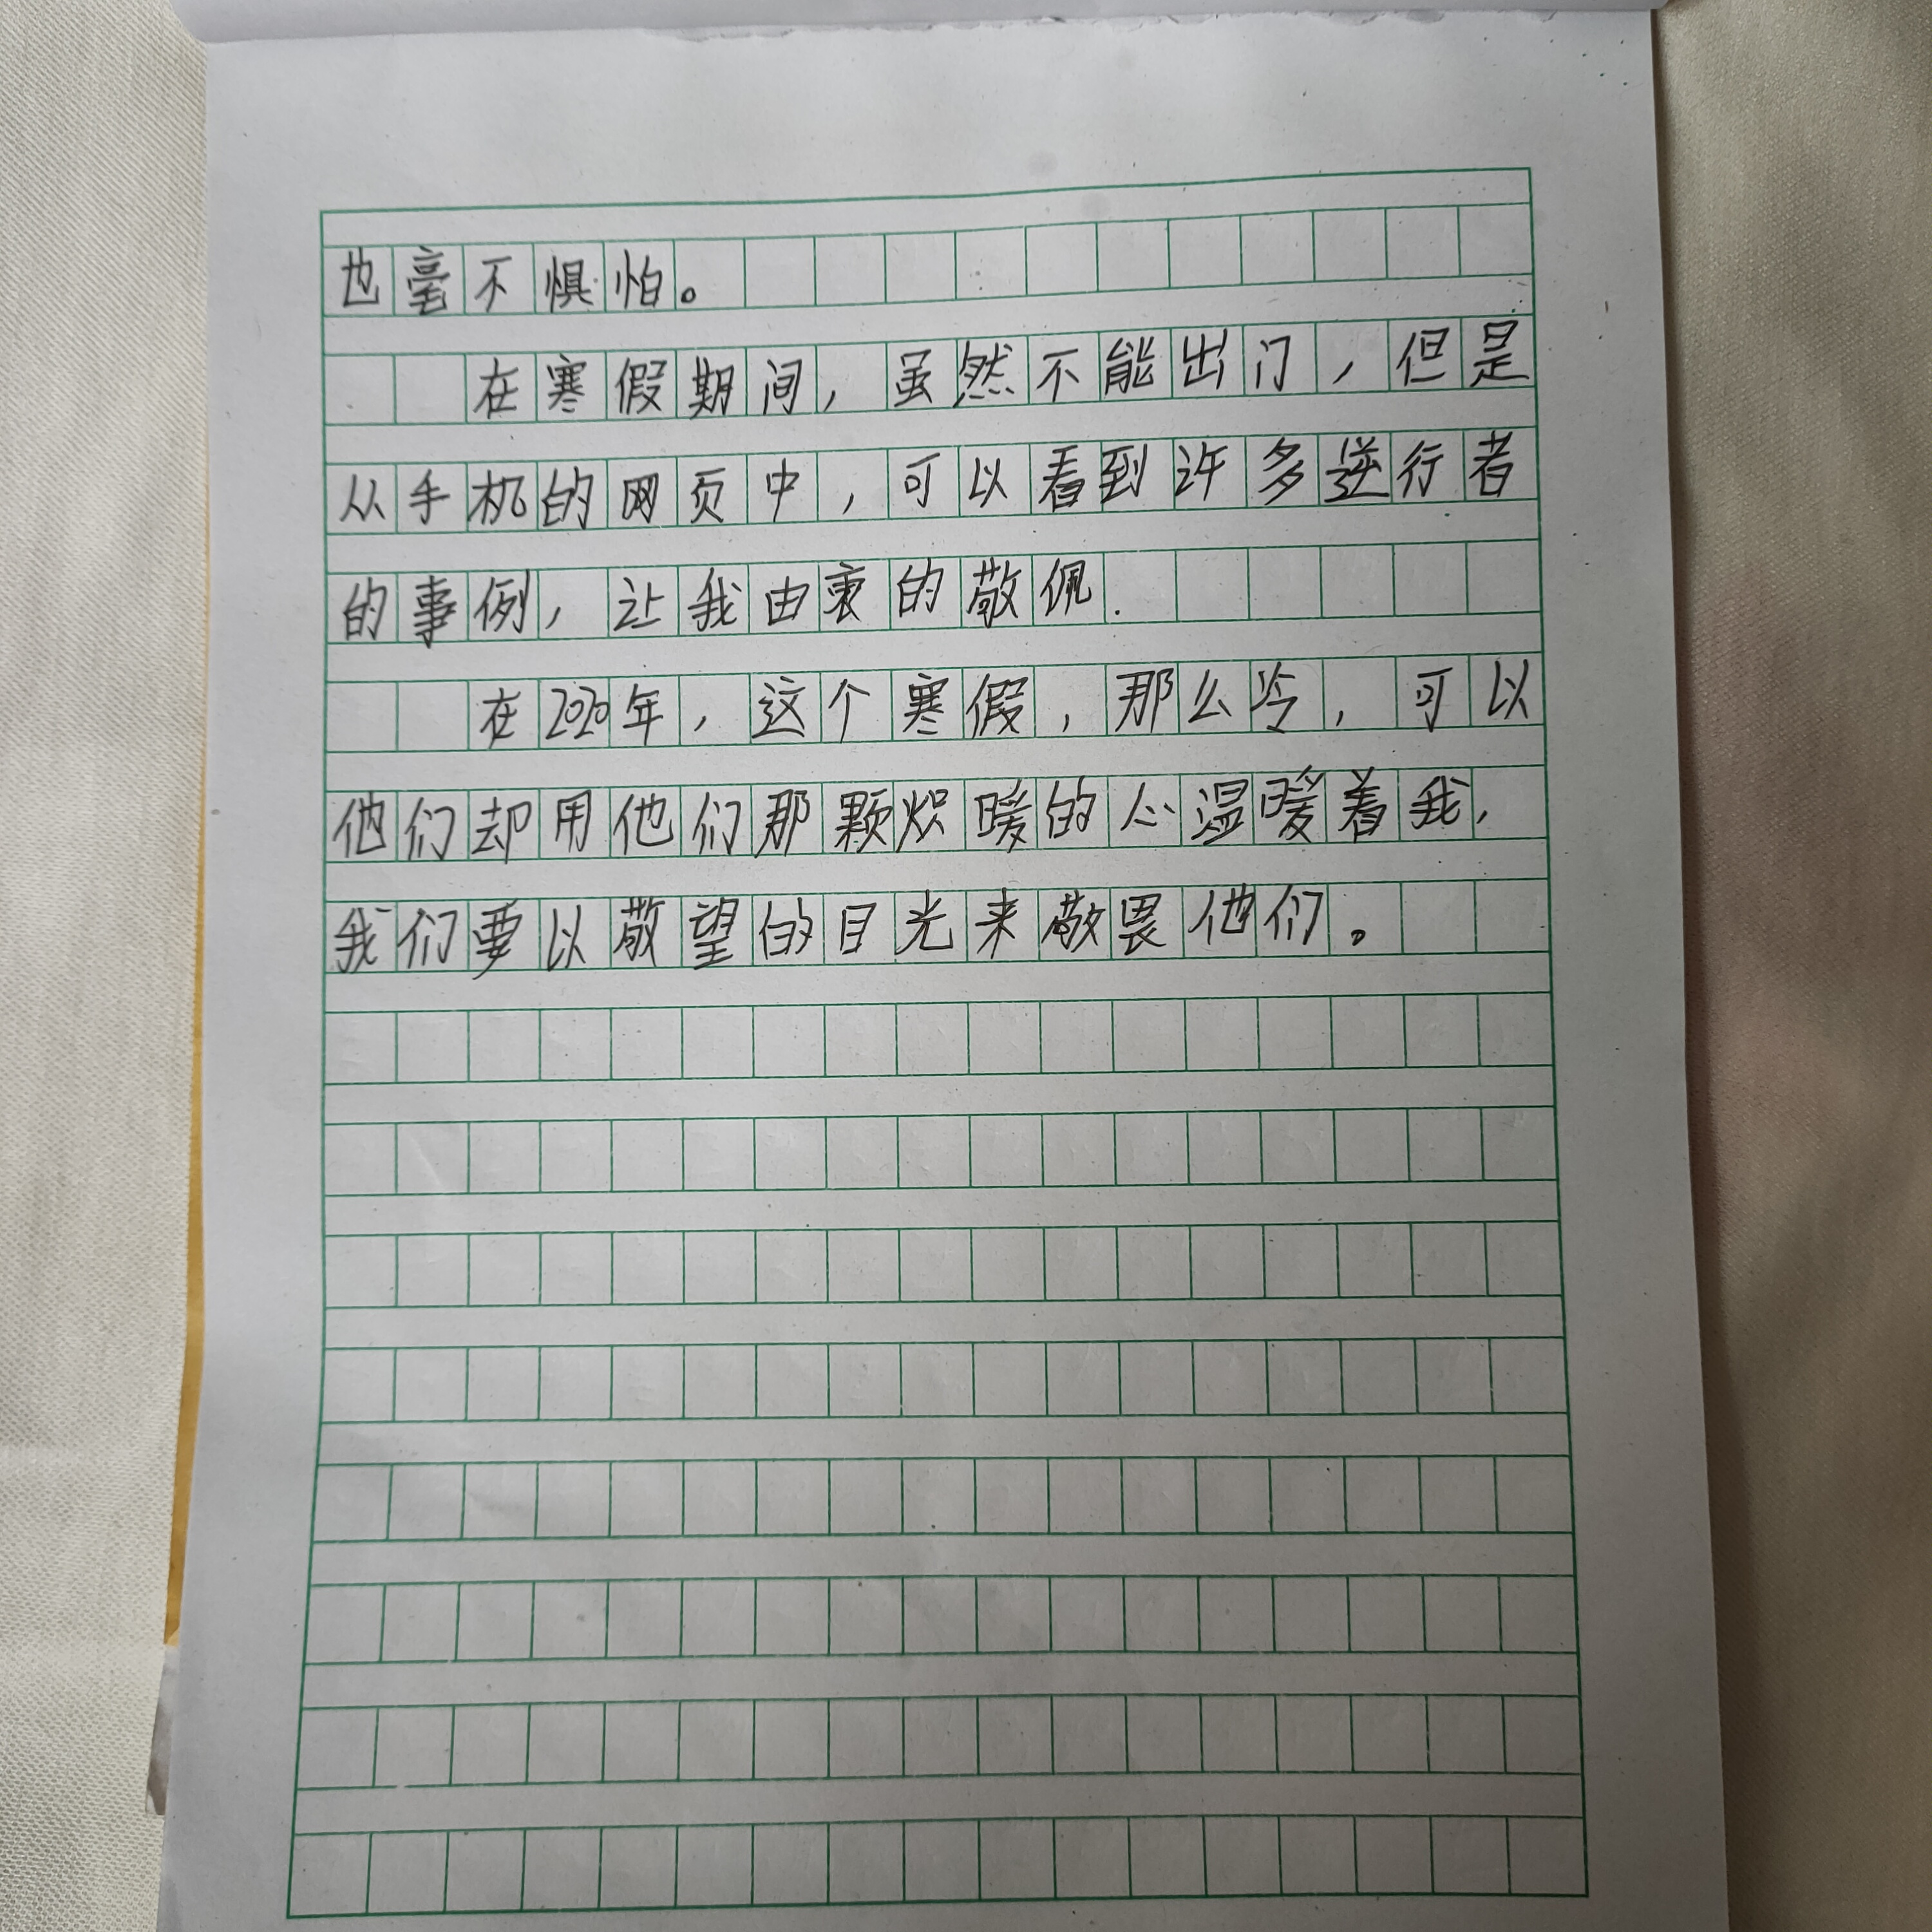 也毫不惧怕。
在寒假期间，虽然不能出门，但是
从手机的网页中，可以看到许多逆行者
的事例，让我由衷的敬佩.
在2020年，这个寒假，那么冷，可以
他们却用他们那颗炽暖的心温暖着我，
我们要以敬望的目光来敬畏他们。